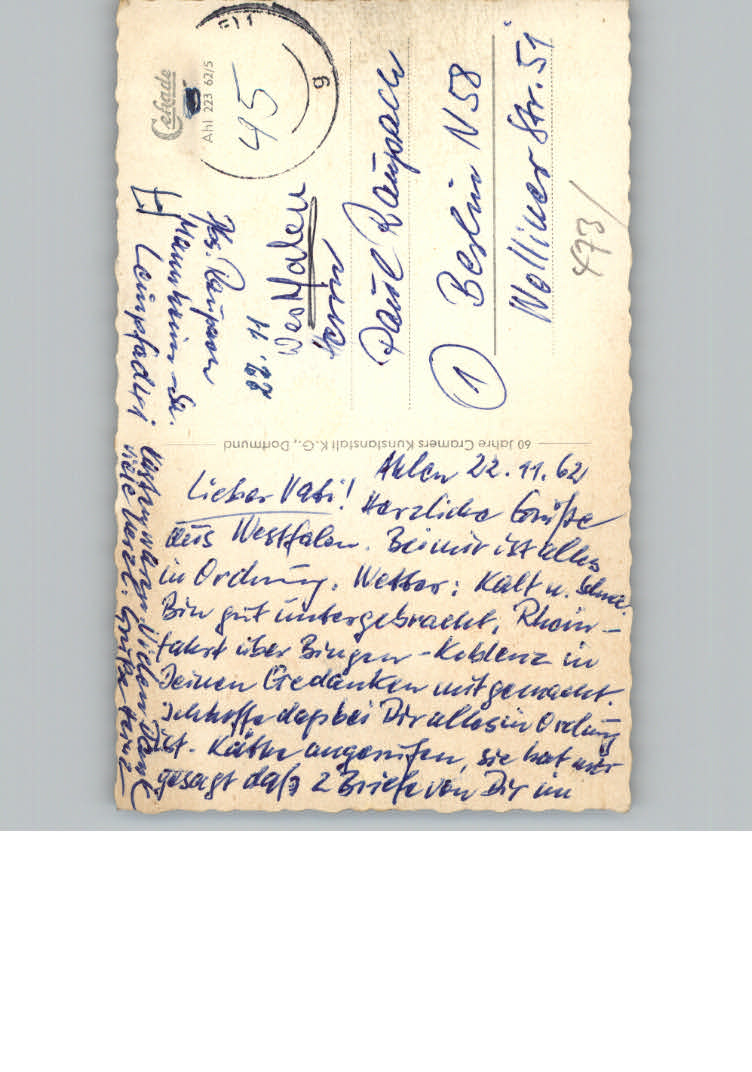 Ahlen 22.11.62
Lieber Vati! Herzliche Grüße
aus Westfalen. Bei mir ist alles
in Ordnung. Wetter: Kalt u.
Bin gut untergebracht, Rhein-
fahrt über Bingen-Koblenz in
Deinen Gedanken mitgemacht.
Ich hoffe daß bei Dir alles in Ordung
ist. Käthe angerufen, sie hat mir
gesagt daß 2 Briefe von Dir im
Vielen Dank
viele herzl. Grüße
60 Jahre Cramers Kunstanstalt K.G., Dortmund
Cekade
Ahl 223 62/5
45
g
Raupach
Mannheim-Sa.
Ahlen
Herrn
Paul Raupach
1 Berlin N 58
Wolliner Str. 51
473/